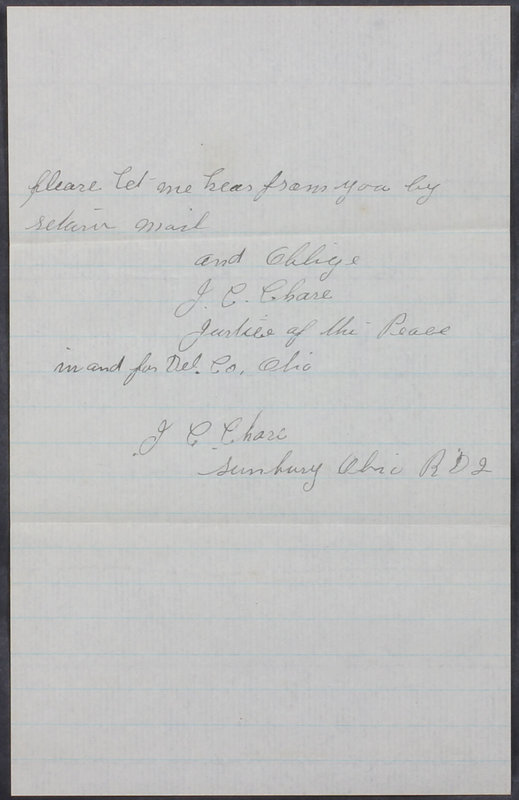 please let me hear from you by
return mail
and Oblige
J. C. Chase
Justice of the Peace
in and for Del. Co, Ohio
J C Chase
Sunbury Ohio R D 2